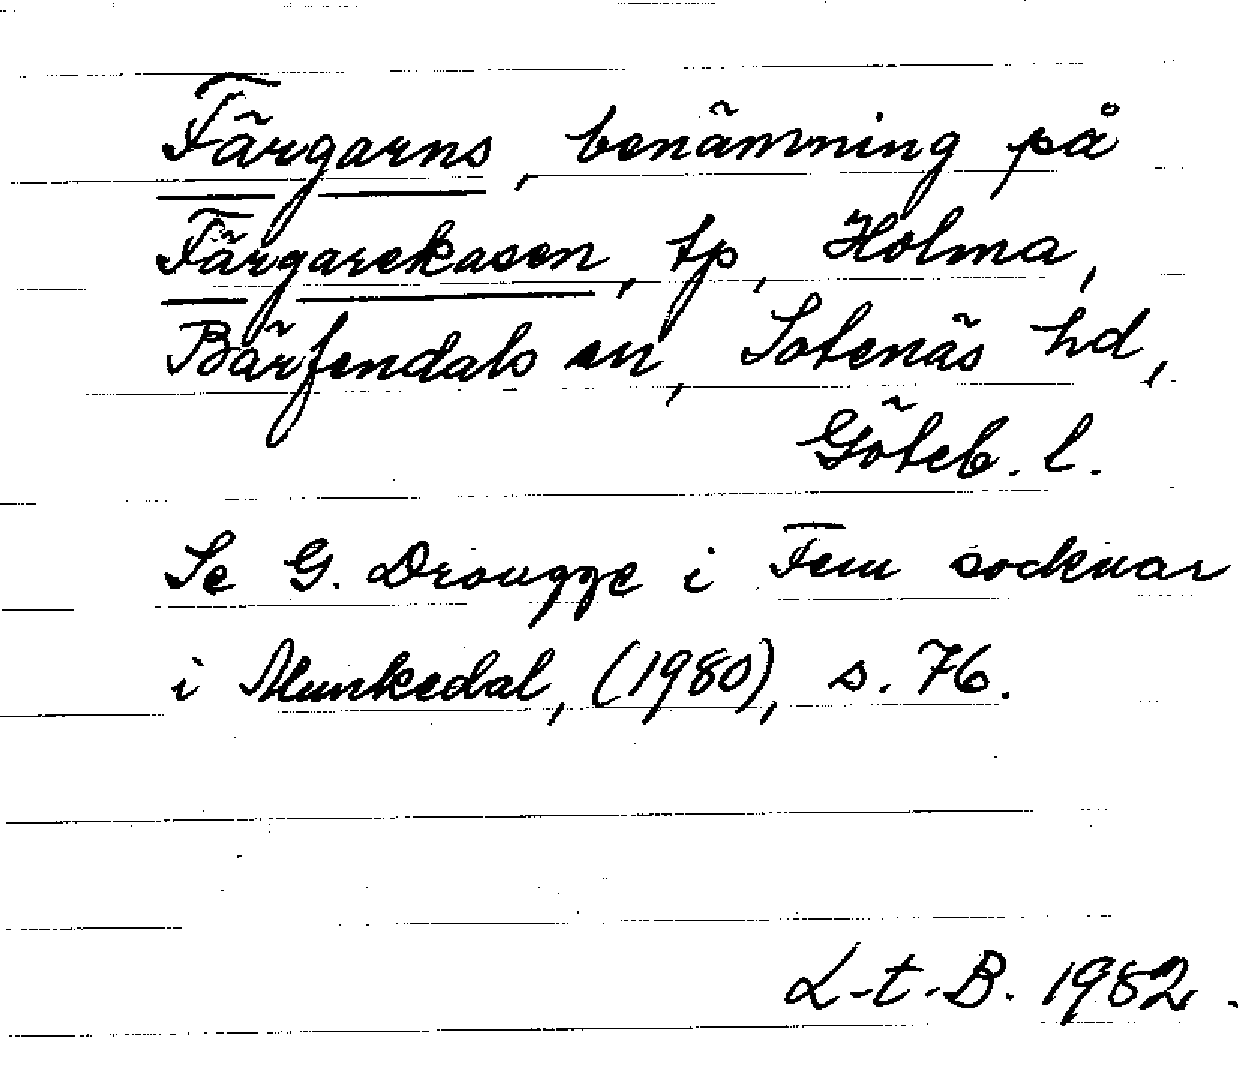 Färgarns, benämning på
Färgarekasen, tp, Holma,
Bärfendals sn, Sotenäs hd,
Göteb. l.
Se G. Drougge i Fem socknar
i Munkedal, (1980), s. 76.
L-t-B. 1982.